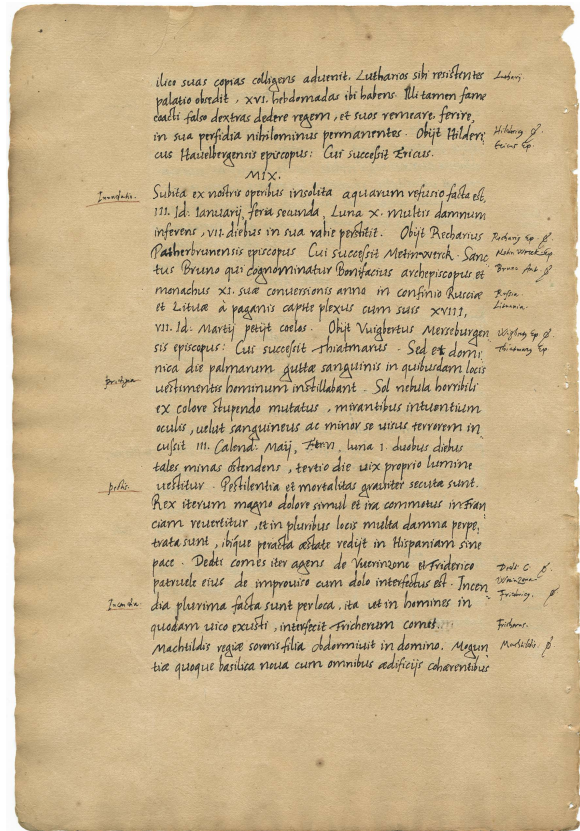 ilico suas copias colligens aduenit. Lutharios sibi resistentes
palatio obsedit, xvi. hebdomadas ibi habens. Illi tamen fame
coacti falso dextras dedere regem, et suos remeare, ferire,
in sua perfidia nihilominus permanentes. Obijt Hilderi,
cus Hauelbergensis episcopus: Cui successit Ericus.
Ericus Ep.
MIX.
Inundatio.
Subita ex nostris operibus insolita aquarum refusio facta est,
III. Id: Ianuarij, feria secunda, Luna X. multis damnum
inferens, VII. diebus in sua rabie perstitit. Obijt Recharius
Patherbrunensis episcopus Cui successit Meimwerck. Sanc
tus Bruno qui cognominatur Bonifacius archepiscopus et
monachus XI. suæ conuersionis anno in confinio Rusciæ
Rusia
et Lituæ à paganis capite plexus cum suis XVIII,
Lituania.
VII. Id: Martij petijt coelos. Obijt Vuigbertus Merseburgen
sis episcopus: Cui successit Thiatmarus. Sed et domi,
Thiatmarg Ep.
nica die palmarum guttæ sanguinis in quibusdam locis
uestimentis hominum instillabant. Sol nebula horribili
ex colore stupendo mutatus, mirantibus intuentium
oculis, uelut sanguineus ac minor se uisus terrorem in,
cussit III. Calend: Maij, luna I. duobus diebus
tales minas ostendens, tertio die uix proprio lumine
pestis.
uestitur. Pestilentia et mortalitas grauiter secuta sunt.
Rex iterum magno dolore simul et ira commotus in Fran
ciam reuertitur, et in pluribus locis multa damna perpe,
trata sunt, ibique peracta æstate redijt in Hispaniam sine
pace. Dedti comes iter agens de Vuerinzone et Friderico
Dedt C.
patruele eius de improuiso cum dolo interfectus est. Incen,
Incendia
dia plurima facta sunt per loca, ita ut in homines in
quodam uico exusti, interfecit Fricherum comit.
Machtildis regiæ sororis filia obdormiuit in domino. Mogun
Machtildis.
tiæ quoque basilica noua cum omnibus ædificijs cohærentibus